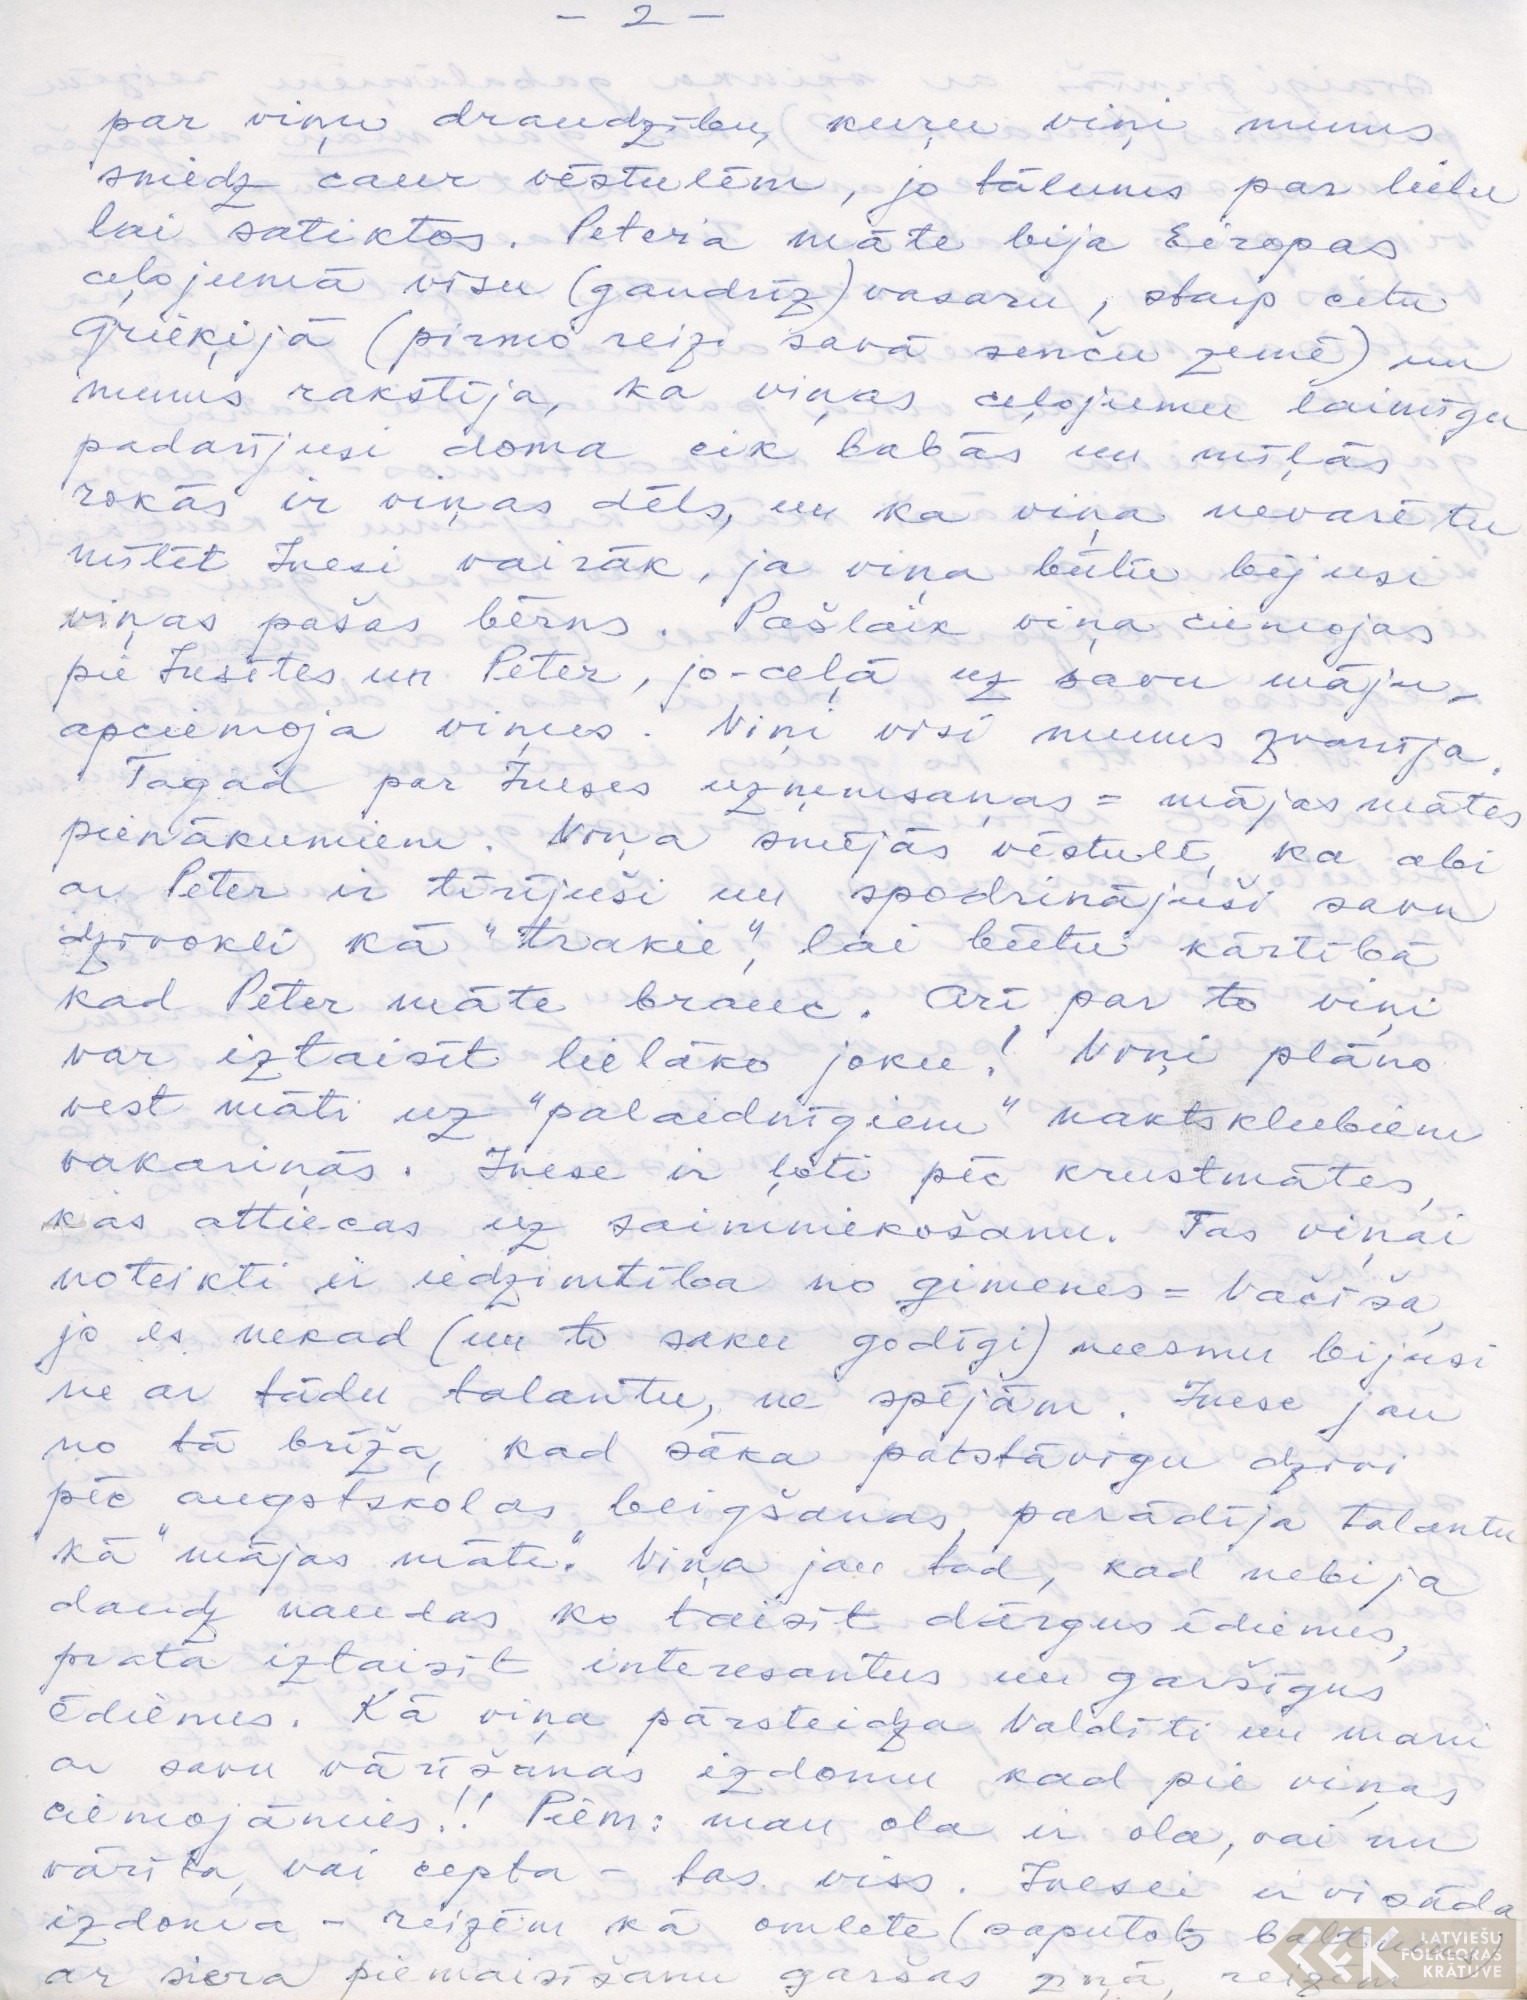 - 2 -
par viņu draudzību, kuŗu viņi mums
sniedz caur vēstulēm, jo tālums par lielu
lai satiktos. Petera māte bija Eiropas
ceļojumā visu (gandrīz) vasaru, starp citu
Grieķijā (pirmo reizi savā senču zemē) un
mums rakstīja, ka viņas ceļojumu laimīgu
padarījusi doma cik labās un mīļās
rokās ir viņas dēls, un ka viņa nevarētu
mīlēt Inesi vairāk, ja viņa būtu bijusi
viņas pašas bērns. Pašlaik viņa ciemojas
pie Inesītes un Peter, jo - ceļā uz savu māju -
apciemoja viņus. Viņi visi mums zvanīja.
Tagad par Ineses uzņemšanas = mājas mātes
pienākumiem. Viņa smējās vēstulē, ka abi
ar Peter ir tīrījuši un spodrinājuši savu
dzīvokli kā "trakie", lai būtu kārtībā
kad Peter māte brauc. Arī par to viņi
var iztaisīt lielāko joku! Viņi plāno
vest māti uz "palaidnīgiem" naktsklubiem
vakariņās. Inese ir ļoti pēc krustmātes,
kas attiecas uz saimniekošanu. Tas viņai
noteikti ir iedzimtība no ģimenes = Vačiša,
jo es nekad (un to saku godīgi) neesmu bijusi
ne ar tādu talantu, ne spējām. Inese jau
no tā brīža, kad sāka patstāvīgu dzīvi
pēc augstskolas beigšanas, parādīja talantu
kā "mājas māte". Viņa jau tad, kad nebija
daudz naudas ko taisīt dārgus ēdienus,
prata iztaisīt interesantus un garšīgus
ēdienus. Kā viņa pārsteidza Valdīti un mani
ar savu vārīšanas izdomu kad pie viņas
ciemojāmies!! Piēm: man ola ir ola, vai nu
vārīta, vai cepta - tas viss. Inesei ir visāda
izdoma - reizēm kā omlete (saputots baltums
ar siera piemaisīšanu garšas ziņā, reizēm
LATVIEŠU
FOLKLORAS
KRĀTUVE